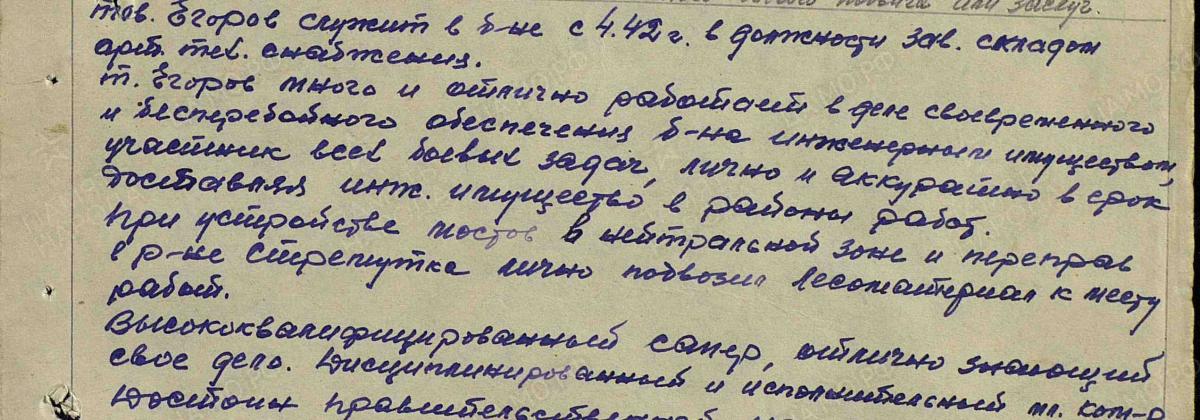 личного подвига или заслуг.
тов. Егоров служит в б-не с 4.42 г. в должности зав. складом
арт. тех. снабжения.
т. Егоров много и отлично работает в деле своевременного
и бесперебойного обеспечения б-на инженерным имуществом,
участник всех боевых задач, лично и аккуратно в срок
доставлял инж. имущество в районы работ.
При устройстве мостов в нейтральной зоне и переправ
в р-не Стремутка лично подвозил лесоматериал к месту
работ.
Высококвалифицированный сапер, отлично знающий
свое дело. Дисциплинированный и исполнительный мл. ком-р
Достоин правительственной